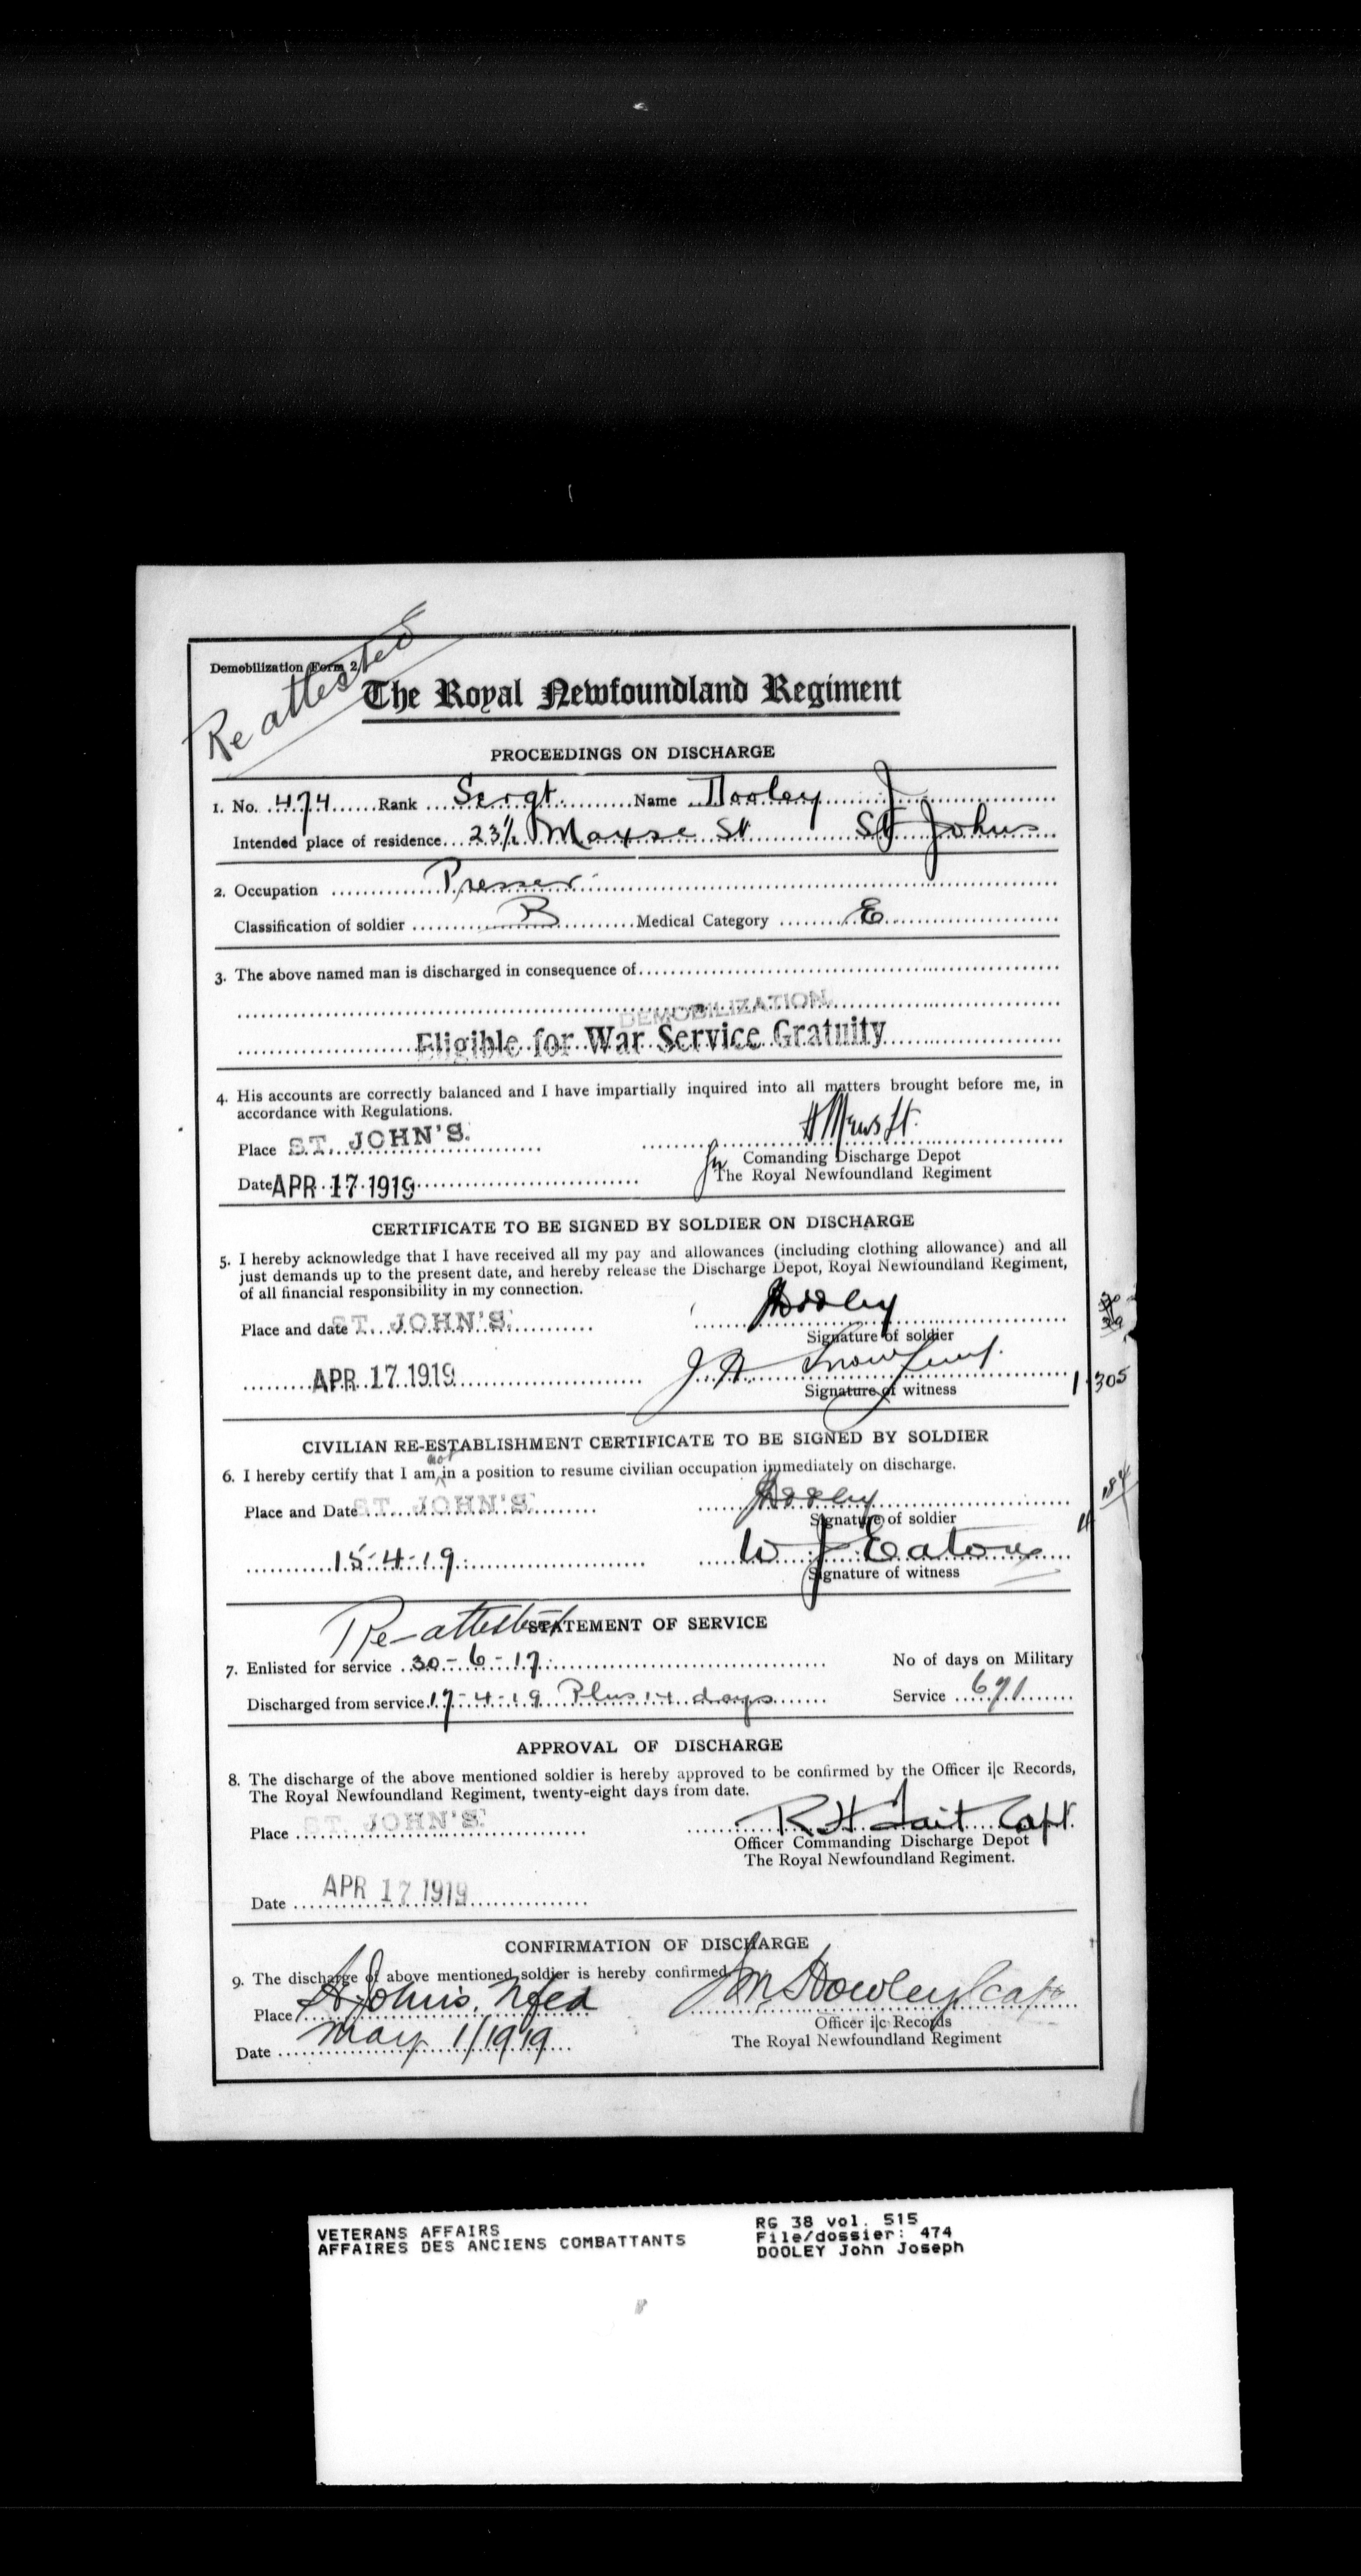 Re attested
Demobilization Form 2
The Royal Newfoundland Regiment
PROCEEDINGS ON DISCHARGE
1. No. 474 Rank Sergt. Name Dooley J
Intended place of residence 23½ Maxse St St Johns
2. Occupation Presser
Classification of soldier B Medical Category E
3. The above named man is discharged in consequence of
DEMOBILIZATION
Eligible for War Service Gratuity
4. His accounts are correctly balanced and I have impartially inquired into all matters brought before me, in
accordance with Regulations.
Place ST. JOHN'S. H Mews Lt.
for Comanding Discharge Depot
Date APR 17 1919 The Royal Newfoundland Regiment
CERTIFICATE TO BE SIGNED BY SOLDIER ON DISCHARGE
5. I hereby acknowledge that I have received all my pay and allowances (including clothing allowance) and all
just demands up to the present date, and hereby release the Discharge Depot, Royal Newfoundland Regiment,
of all financial responsibility in my connection.
Place and date ST. JOHN'S. JDooley
Signature of soldier
APR 17 1919 J A Snow
Signature of witness
305
CIVILIAN RE-ESTABLISHMENT CERTIFICATE TO BE SIGNED BY SOLDIER
not
6. I hereby certify that I am in a position to resume civilian occupation immediately on discharge.
Place and Date ST. JOHN'S. JDooley
184
Signature of soldier
15-4-19. W J Eaton
Signature of witness
Re-attested STATEMENT OF SERVICE
7. Enlisted for service 30-6-17. No of days on Military
Discharged from service 17-4-19 Plus 14 days Service 671
APPROVAL OF DISCHARGE
8. The discharge of the above mentioned soldier is hereby approved to be confirmed by the Officer i|c Records,
The Royal Newfoundland Regiment, twenty-eight days from date.
Place ST. JOHN'S. R H Tait Capt.
Officer Commanding Discharge Depot
The Royal Newfoundland Regiment.
Date APR 17 1919
CONFIRMATION OF DISCHARGE
9. The discharge of above mentioned soldier is hereby confirmed
Place St John's. Nfld JM Howley Capt
Officer i|c Records
Date May 1/1919 The Royal Newfoundland Regiment
VETERANS AFFAIRS RG 38 vol. 515
AFFAIRES DES ANCIENS COMBATTANTS File/dossier: 474
DOOLEY John Joseph